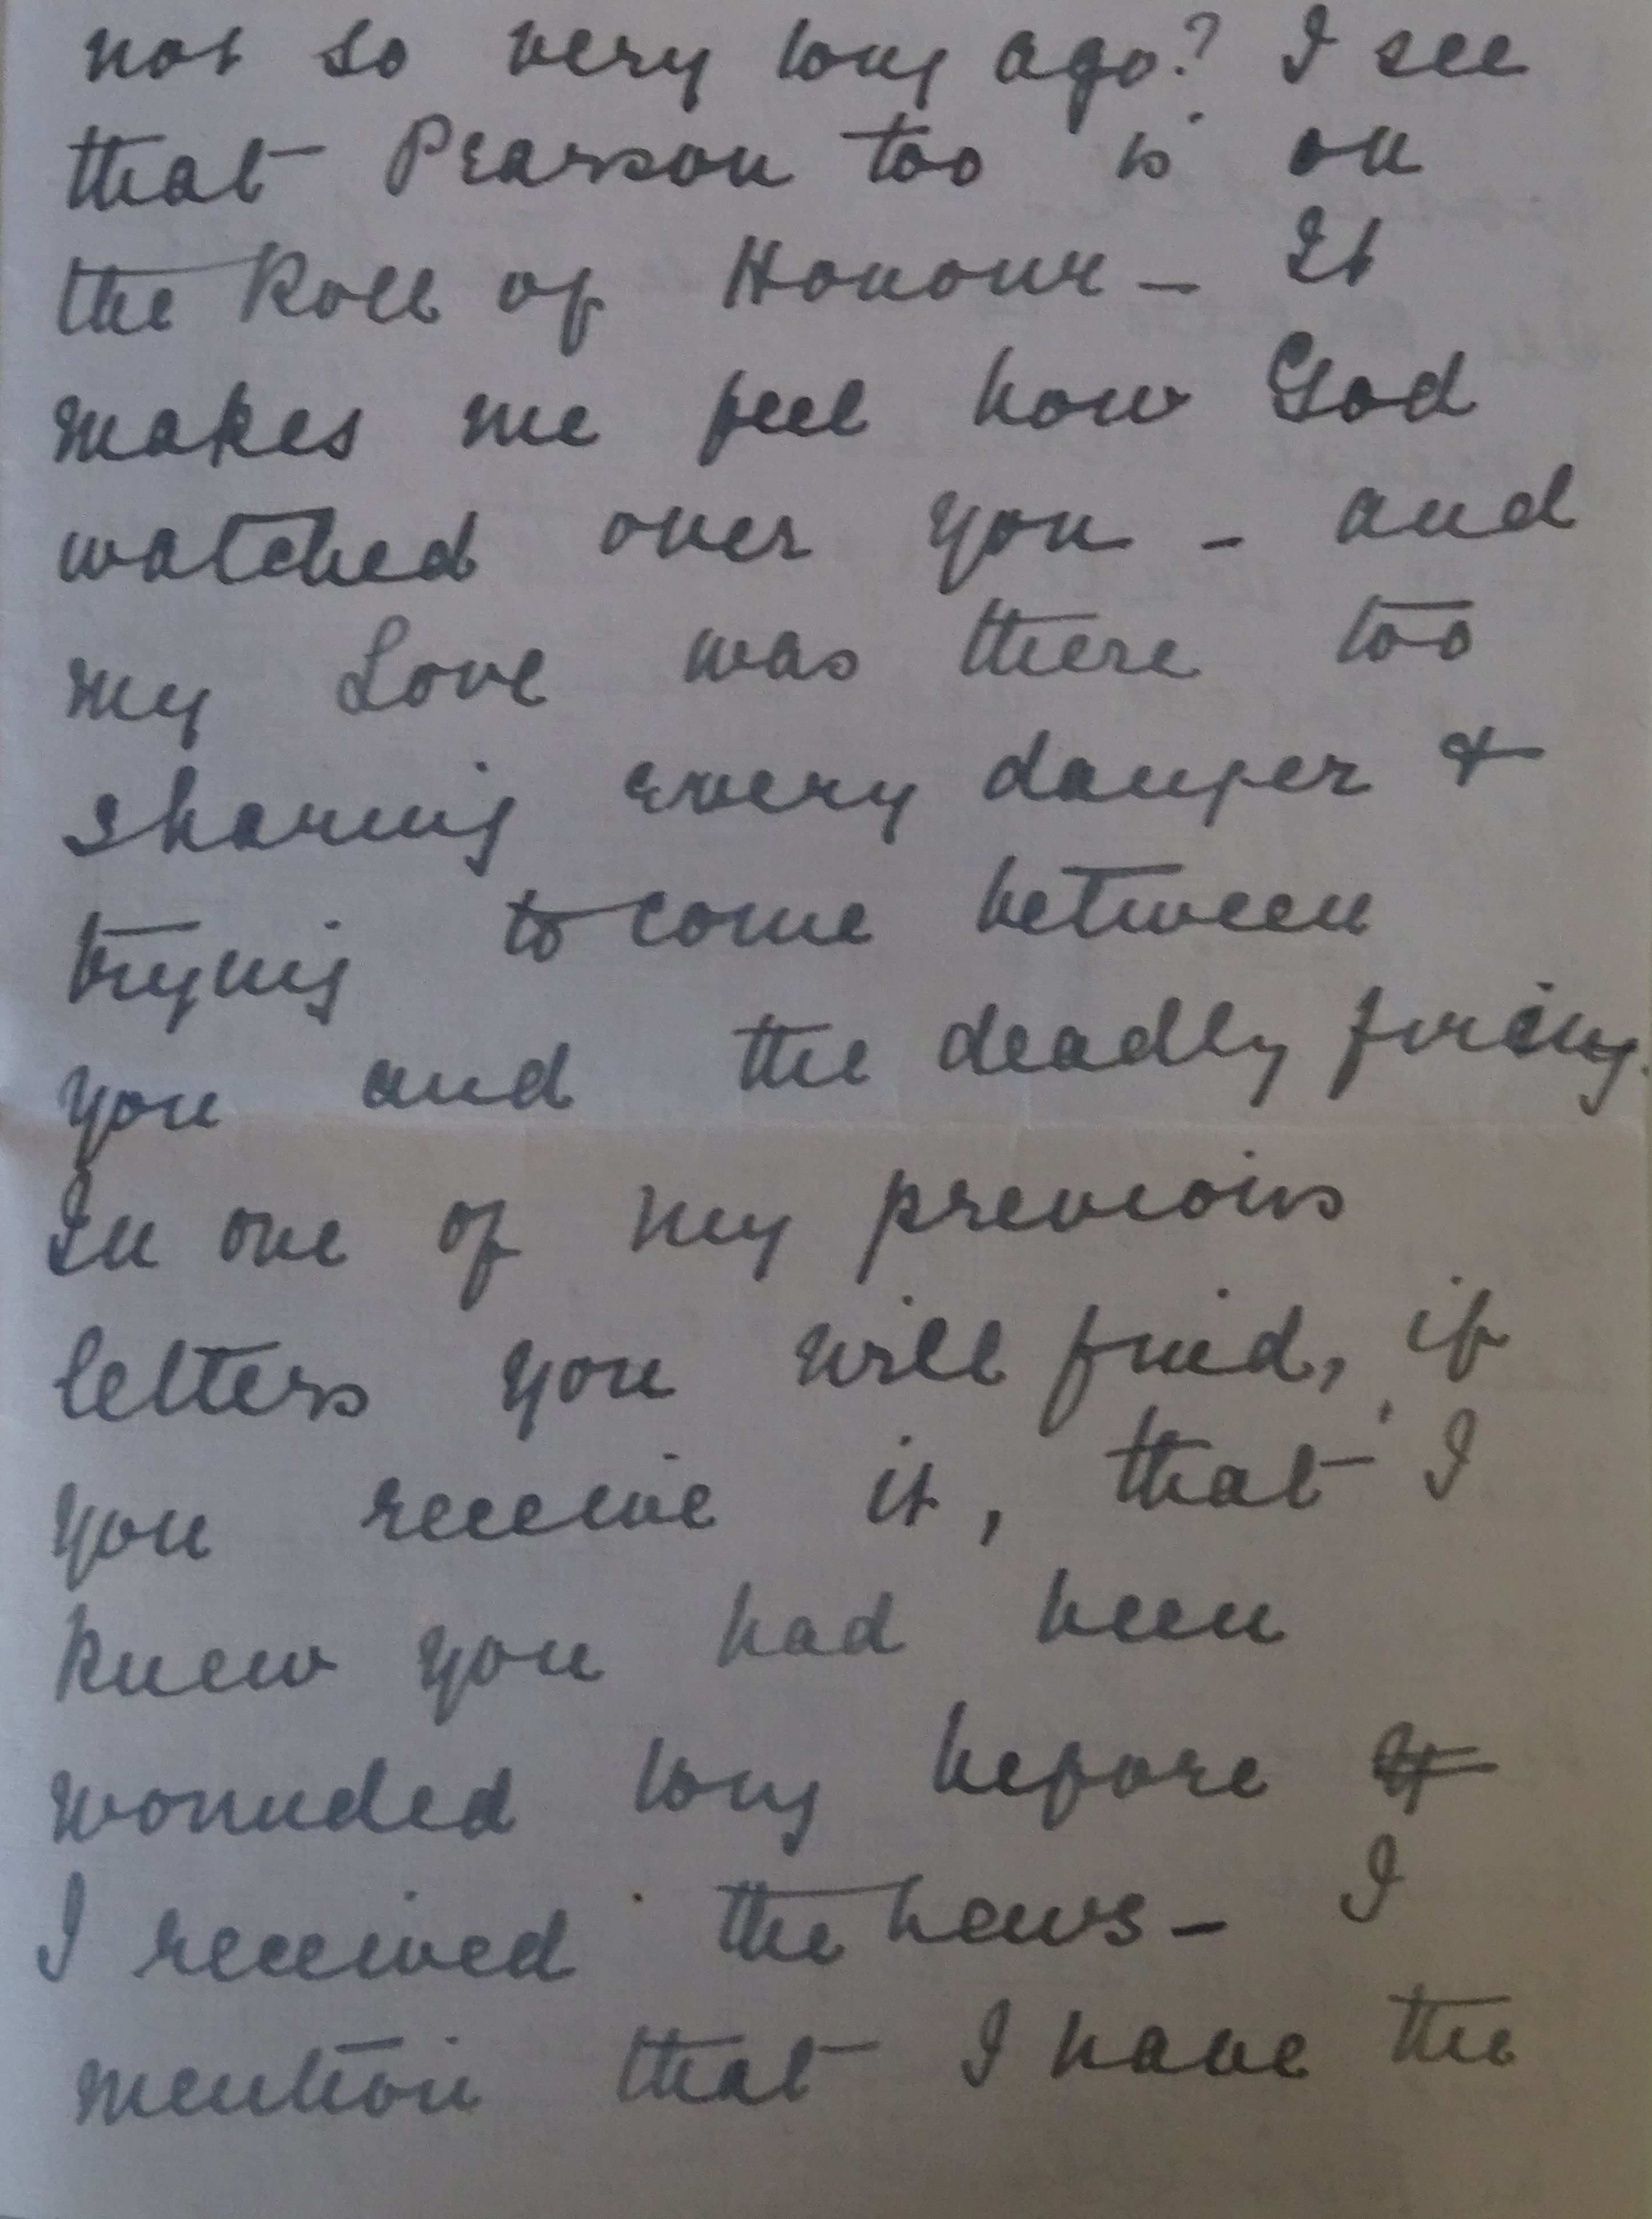 not so very long ago? I see
that Pearson too is on
the Roll of Honour – It
makes me feel how God
watched over you – and
my Love was there too
sharing every danger &
trying to come between
you and the deadly firing.
In one of my previous
letters you will find, if
you receive it, that I
knew you had been
wounded long before
I received the news – I
mention that I have the